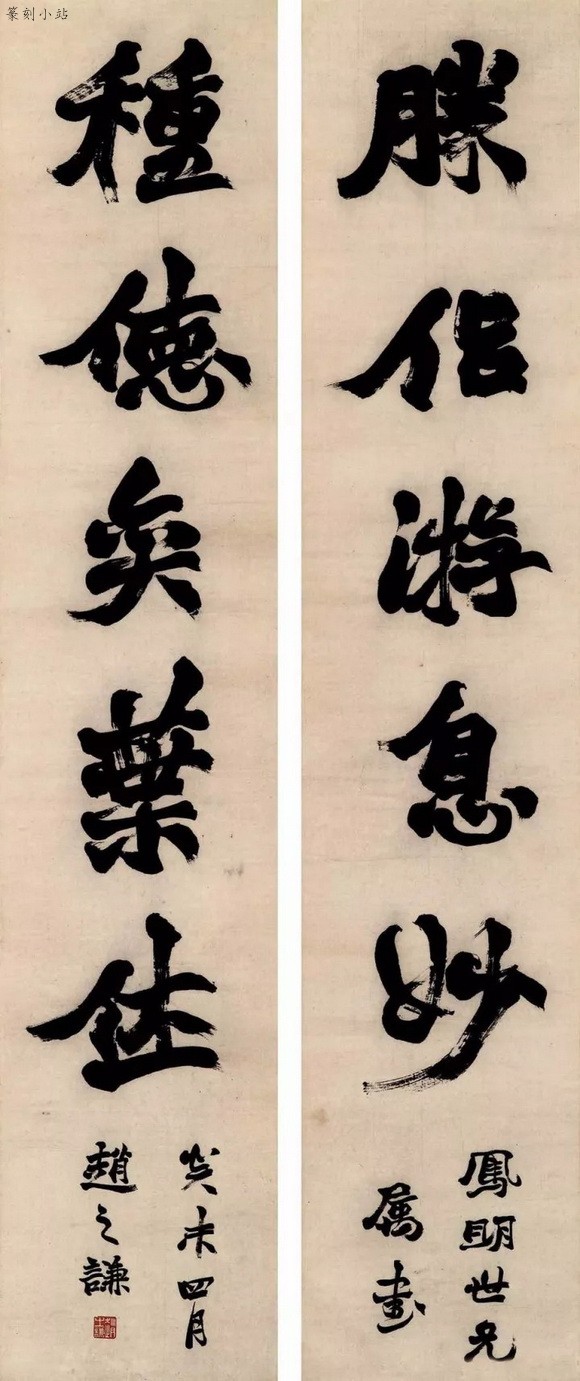 篆刻小站
勝侶游息妙
鳳明世兄
属書
種德奕葉休
癸未四月
趙之謙